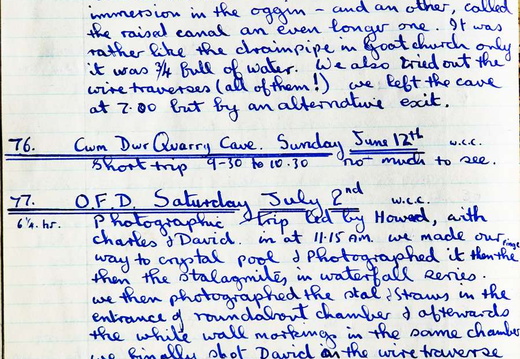 immersion in the oggin - and an other, called
the raised canal an even longer one. It was
rather like the drainpipe in Goatchurch only
it was 3/4 full of water. We also tried out the
wire traverses (all of them!) we left the cave
at 7.00 but by an alternative exit.
76. Cwm Dwr Quarry Cave. Sunday June 12th w.c.c.
Short trip 9-30 to 10.30 no much to see.
77. O.F.D. Saturday July 2nd w.c.c.
6 1/4 hr. Photographic trip led by Howard, with
Charles & David. in at 11.15 am. we made our
way to crystal pool & Photographed it then the
then the stalagmites, in waterfall series.
we then photographed the stal & straws in the
entrance of roundabout chamber & aftewards
the white wall markings in the same chamber
we finally shot David on the wire traverse